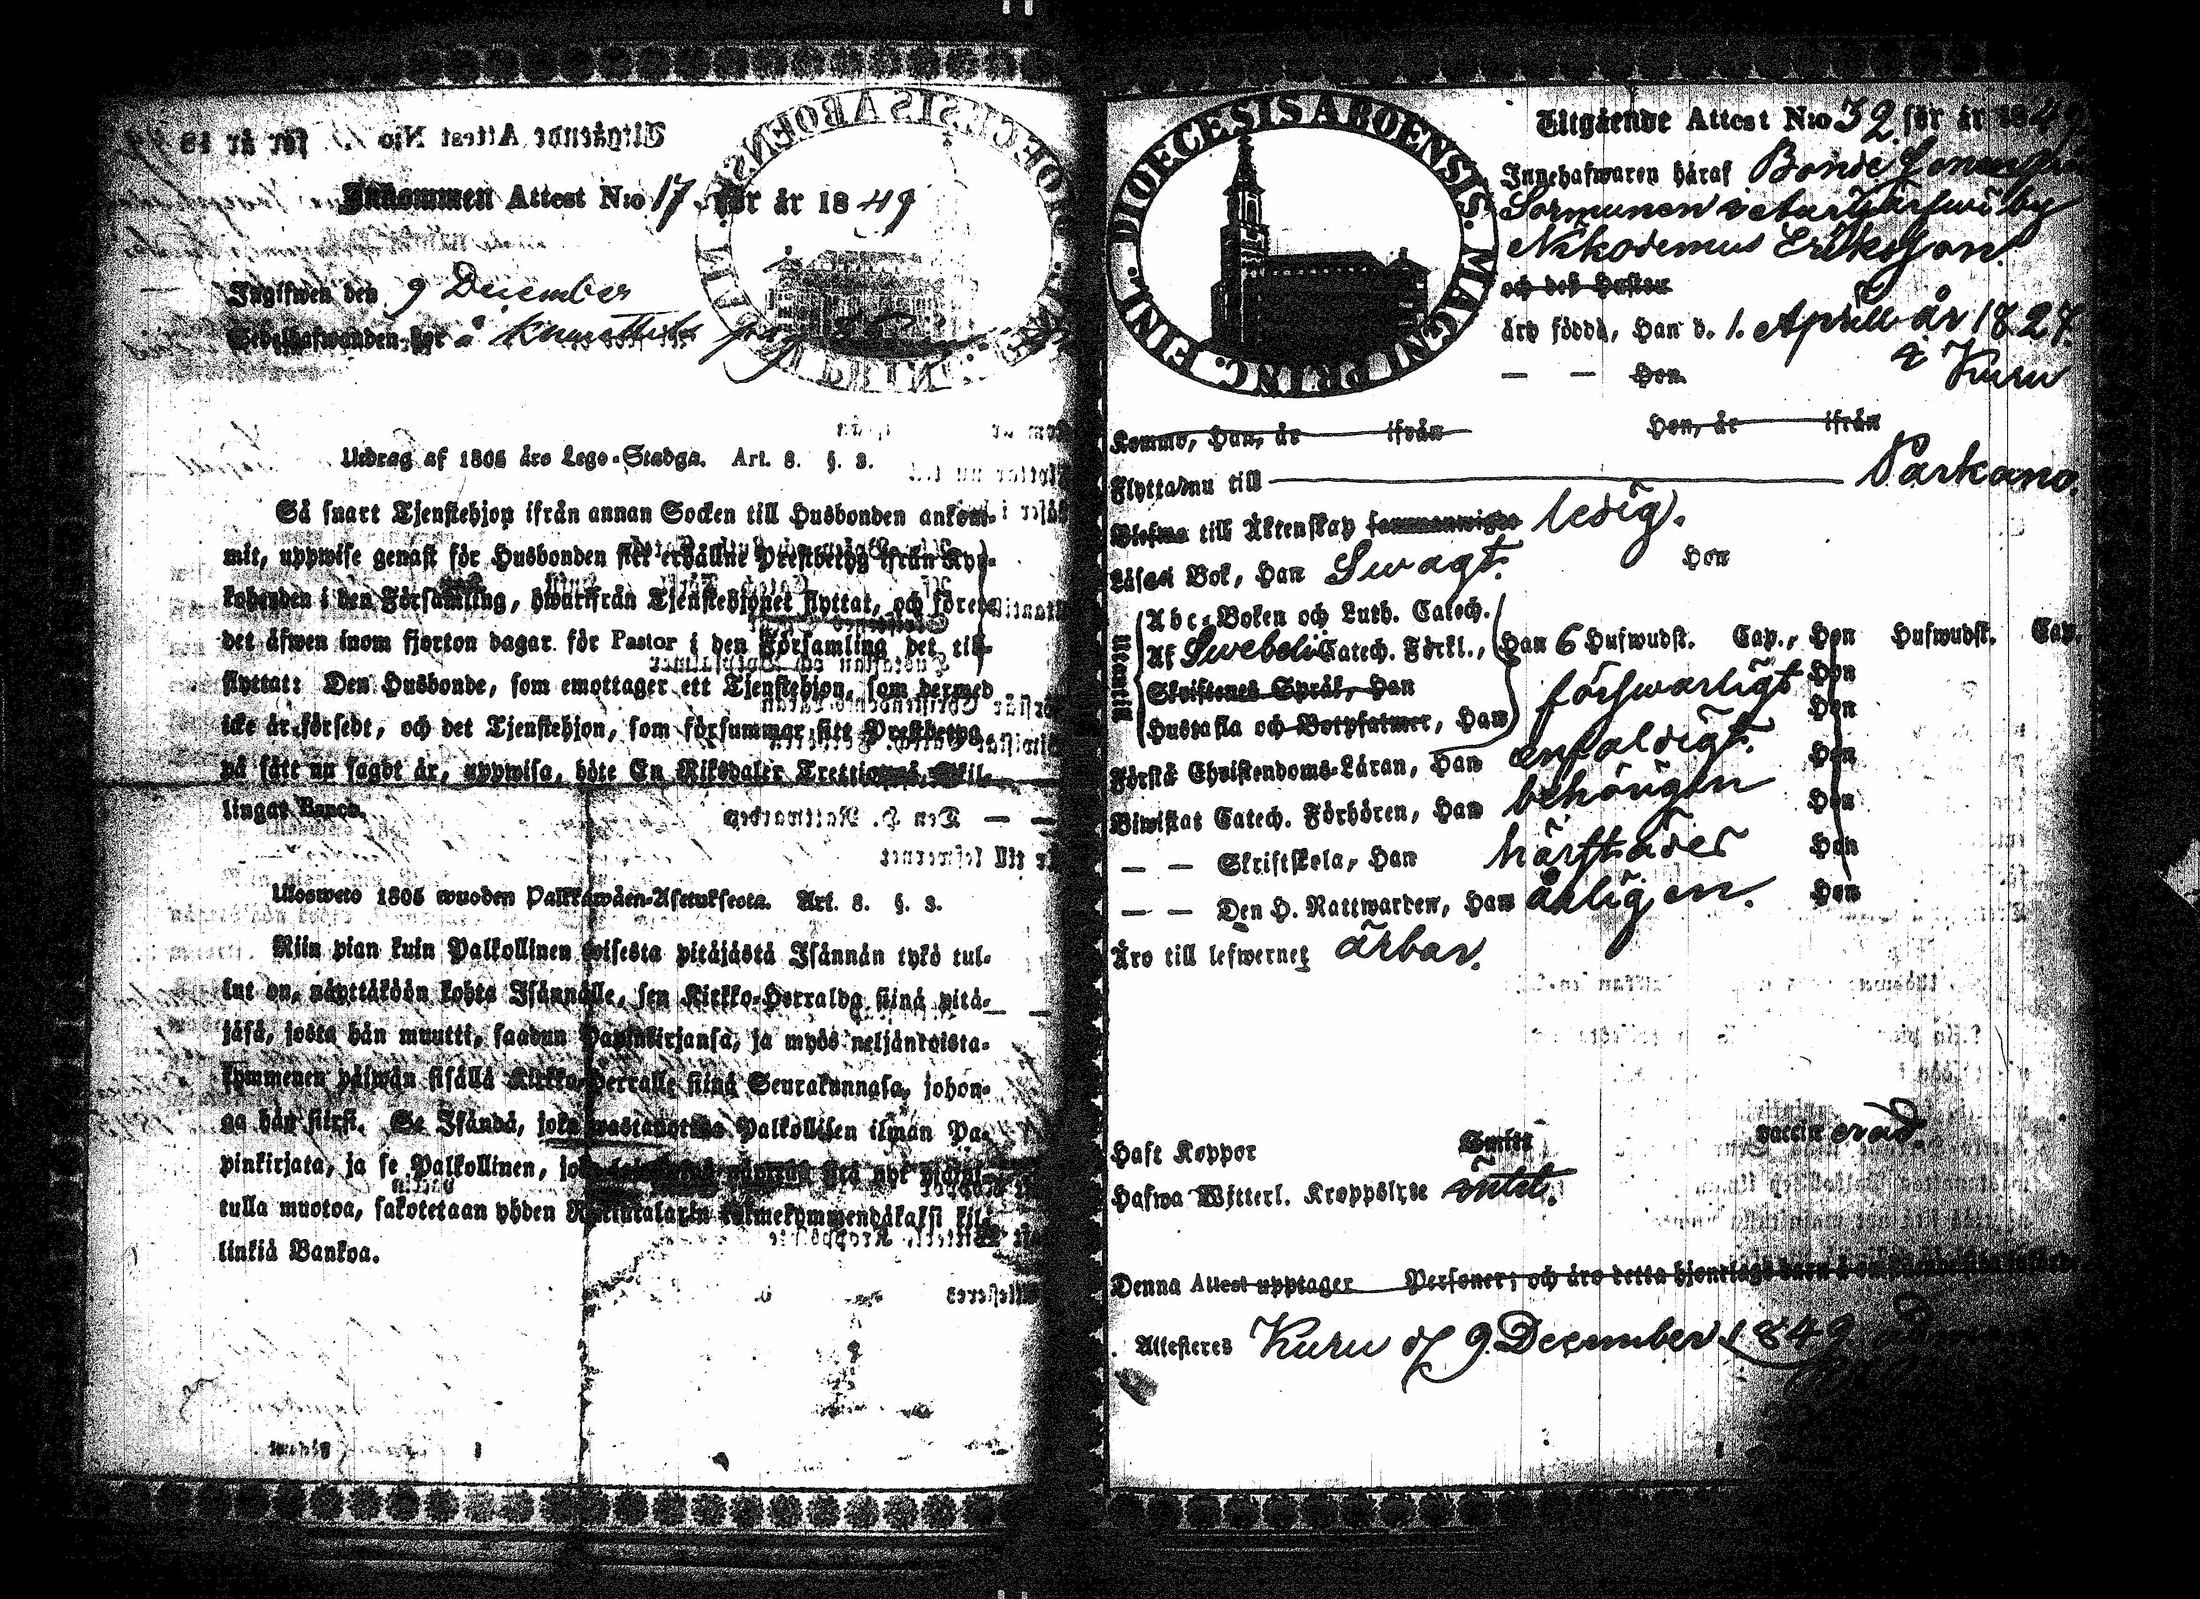 Inkommen Attest N:o 17 för år 1849
Ingifwen den 9 December
Utdrag af 1805 års Lego-Stadga. Art. 8. §. 3.
Så snart Tjenstehjon ifrån annan Socken till Husbonden ankom-
mit, uppwise genast för Husbonden sitt erhållne Prestbetyg ifrån Kyr-
koherden i den Församling, hwarifrån Tjenstehjonet flyttat, ochförete
det äfwen inom fjorton dagar för Pastor i den Församling det till-
flyttat: Den Husbonde, som emottager ett Tjenstehjon, som dermed
icke är försedt, och det Tjenstehjon, som försummar sitt Prestbetyg
på sätt nu sagdt är, uppwisa, böte En Riksdaler Trettiotvå Skil-
lingar Banco.
Ulosweto 1805 wuoden Palkkawäen-Asetuksesta. Art. 8. §. 3.
Niin pian kuin Palkollinen toisesta pitäjästä Isännän tykö tul-
lut on, näyttäköön kohta Isännälle, sen Kirkko-Herralda siinä pitä-
jäsä, josta hän muutti, saadun Papinkirjansa, ja myös neljäntoista-
kymmenen päiwän sisällä Kirkko-Herralle siinä Seurakunnasa, johon-
ga hän siirsi. Se Isändä, joka wastanottaa Palkollisen ilman Pa-
pinkirjata, ja se Palkollinen, jo
tulla muotoa, sakotetaan yhden Riksitalarin kolmekymmendäkaksi kil-
linkiä Bankoa.
DIOECESIS ABOENSIS. MAGNI PRINC. FINL.
Utgående Attest N:o 32 för år 1849
Innehafwaren häraf Bonde Sonen från
Sormunen i by
Nikodemus Eriksson
och deß Hustru
äro födda, Han d. 1. Aprill år 1827.
i Kuru
— — Hon
Kommo, Han, år ifrån Hon, år ifrån
Flytta nu till Parkano.
till Äktenskap sammanwigde ledig.
Läsa i Bok, Han Swagt. Hon
Utantill
Abc-Boken och Luth. Catech.
Af Swebelii Catech. Förkl., Han 6 Hufwudst. Cap., Hon Hufwudst. Cap.
Skriftenes Språk, Han försvarligt Hon
Hustafla och Botpsalmer, Han Hon
Förstå Christendoms-Läran, Han enfaldigt. Hon
Biwistat Catech. Förhören, Han behörigen Hon
— — Skriftskola, Han härstädes Hon
— — Den H. Nattwarden, Han årligen. Hon
Äro till lefwernet ärbar.
Haft Koppor Smitt vaccin erad.
Hafwa Witterl. Kroppslyte intet.
Denna Attest upptager Personer; och äro detta hjonelags barn
Attesteres Kuru d. 9. December 1849